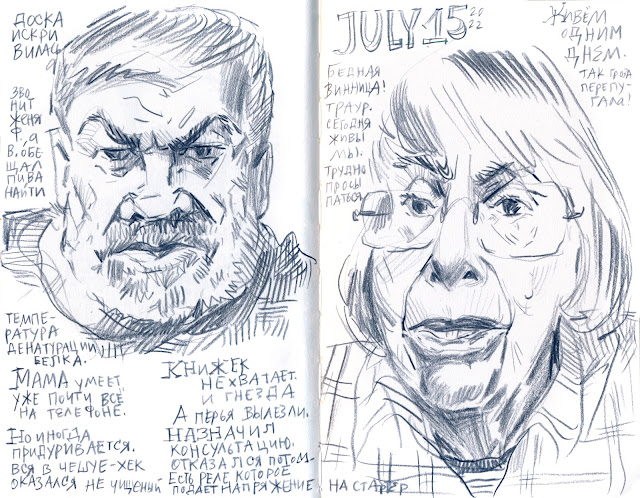 ДОСКА
ИСКРИ
ВИМСЬ
Я
ЗВО
НИТ
ЖЕНЯ
Ф. Я
В. ОБЕ
ЩАЛ
ПИВА
НАЙТИ
ТЕМПЕ-
РАТУРА
ДЕНАТУРАЦИИ
БЕЛКА.
МАМА УМЕЕТ
УЖЕ ПОЧТИ ВСЁ
НА ТЕЛЕФОНЕ.
НО ИНОГДА
ПРИДУРИВАЕТСЯ.
ВСЯ В ЧЕШУЕ-ХЕК
ОКАЗАЛСЯ НЕ ЧИЩЕНЫЙ
КНИЖЕК
НЕ ХВАТАЕТ.
И ГНЕЗДА
А ПЕРЬЯ ВЫЛЕЗЛИ.
НАЗНАЧИЛ
КОНСУЛЬТАЦИЮ.
ОТКАЗАЛСЯ ПОТОМ.
ЕСТЬ РЕЛЕ КОТОРОЕ
ПОДАЁТ НАПРЯЖЕНИЕ НА СТАРТЕР
JULY·15 20
22
БЕДНАЯ
ВИННИЦА!
ТРАУР.
СЕГОДНЯ
ЖИВЫ
МЫ.
ТРУДНО
ПРОСЫ
ПАТЬСЯ
ЖИВЁМ
ОДНИМ
ДНЁМ.
ТАК ГРОЗА
ПЕРЕПУ-
ГАЛА!